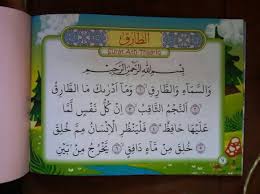 الطارق
Surat Ath-Thaariq
بِسْمِ اللهِ الرَّحْمٰنِ الرَّحِيْمِ
وَالسَّمَآءِ وَالطَّارِقِ ۝ وَمَآ اَدْرٰىكَ مَا الطَّارِقُ
۝ النَّجْمُ الثَّاقِبُ ۝ اِنْ كُلُّ نَفْسٍ لَّمَّا
عَلَيْهَا حَافِظٌ ۝ فَلْيَنْظُرِ الْاِنْسَانُ مِمَّ خُلِقَ
۝ خُلِقَ مِنْ مَّآءٍ دَافِقٍ ۝ يَّخْرُجُ مِنْۢ بَيْنِ